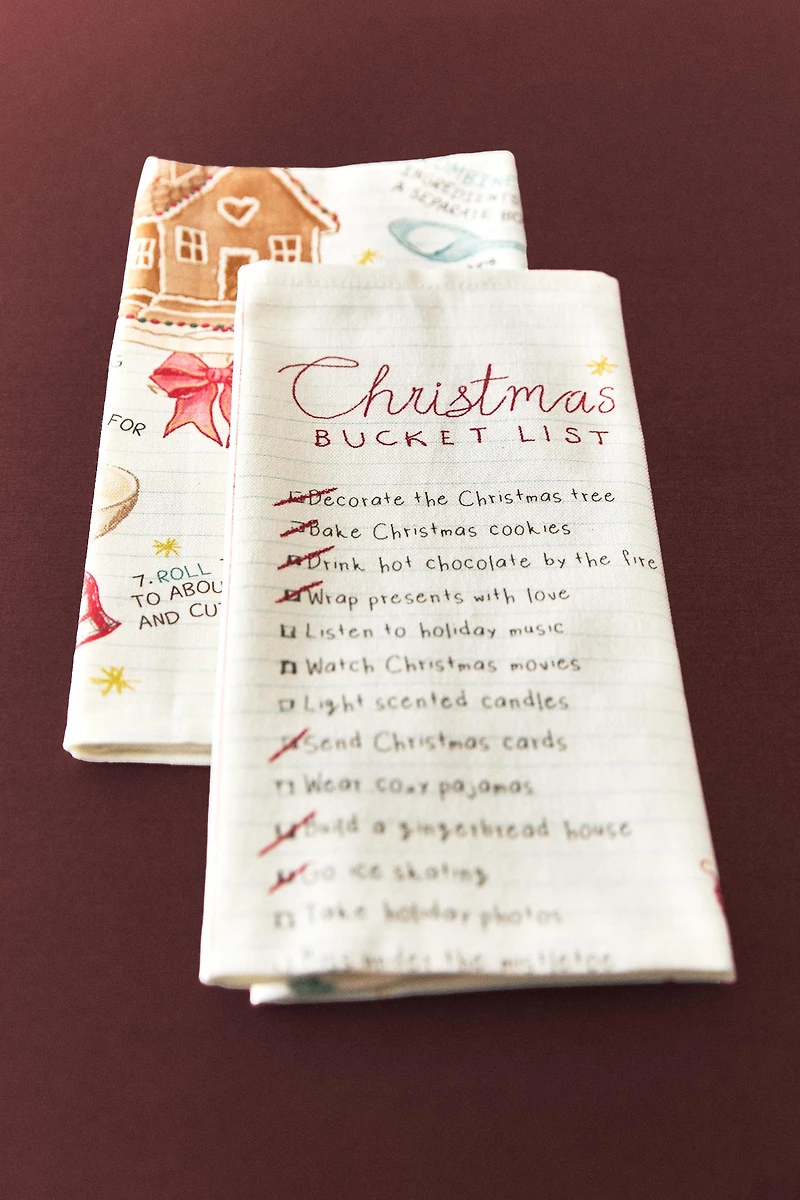 COMBINE
INGREDIENTS
A SEPARATE BO
G
FOR
7. ROLL
TO ABOU
AND CUT
Christmas
BUCKET LIST
Decorate the Christmas tree
Bake Christmas cookies
Drink hot chocolate by the fire
Wrap presents with love
Listen to holiday music
Watch Christmas movies
Light scented candles
Send Christmas cards
Wear cozy pajamas
Build a gingerbread house
Go ice skating
Take holiday photos
Kiss under the mistletoe